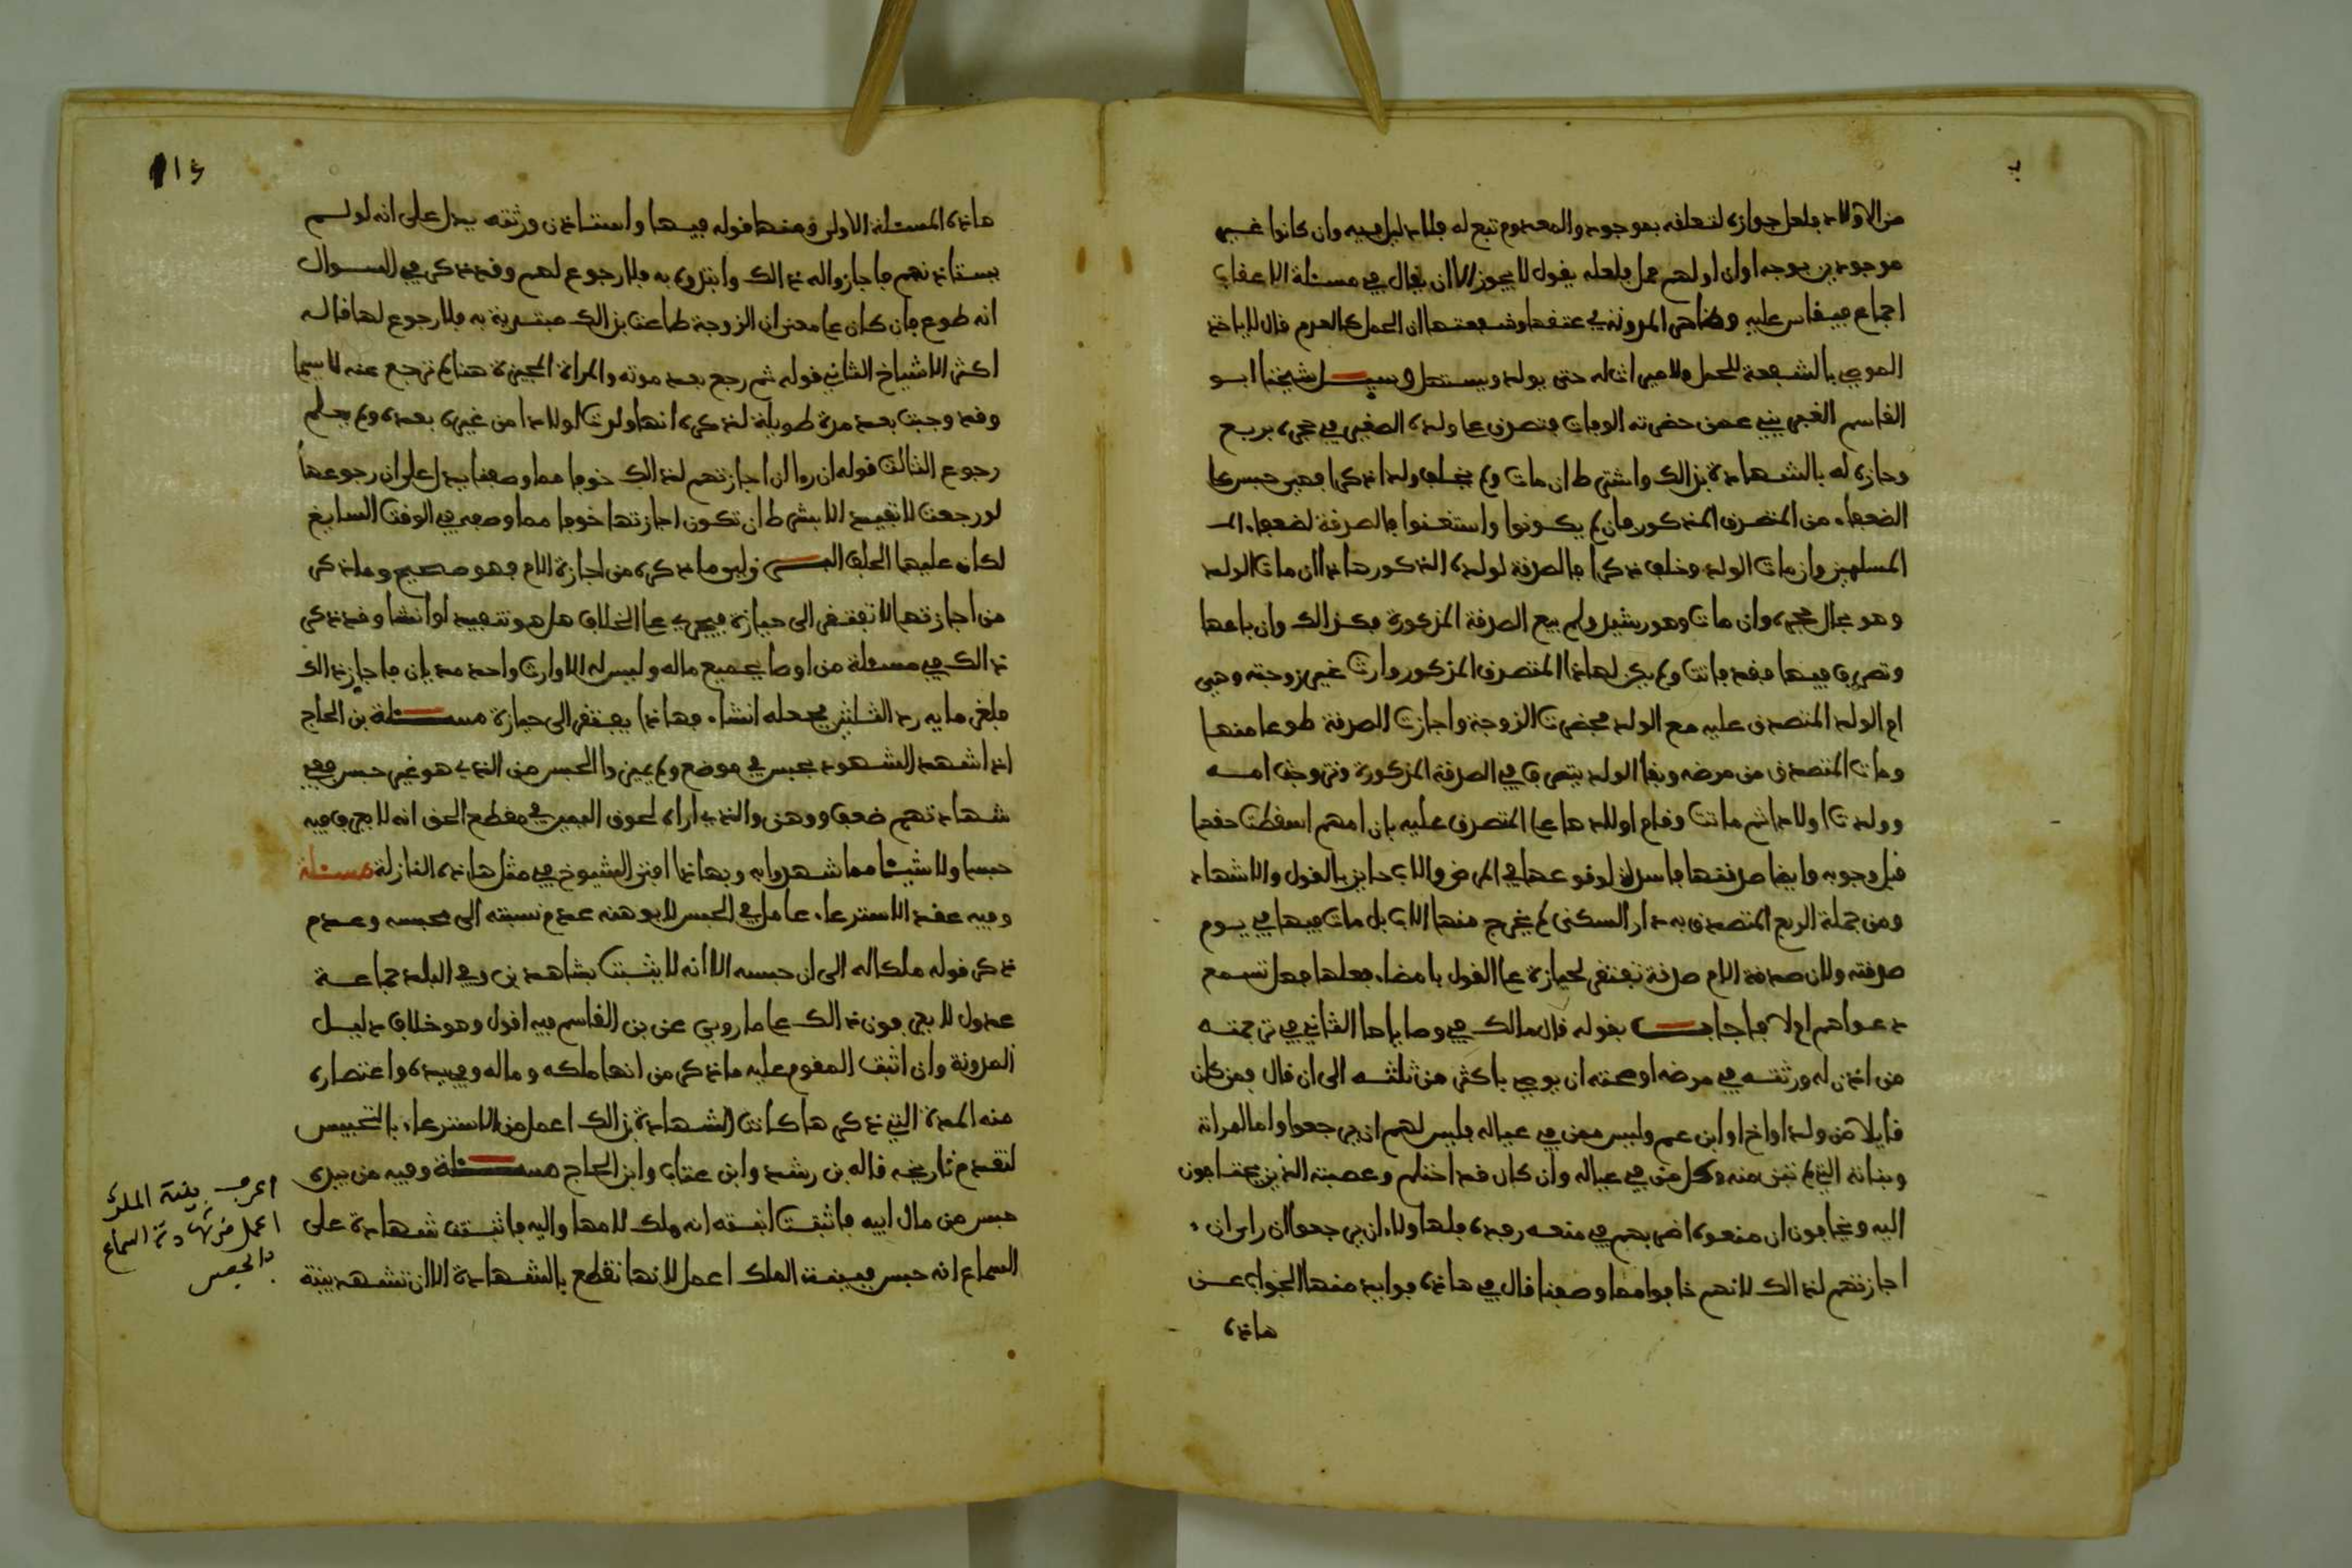 من الاولاد فلعل جوازه لتعلقه بموجود والمعدوم تبع له فلا دليل فيه وان كانوا غير
موجودين بوجه اوان اولهم حمل فلعله يقول لا يجوز الا ان يقال في مسئلة الاعقاب
اجماع فيقاس عليه وظاهر المدونة في عتقها وشفعتها ان الحمل كالعدم قال لا ياخذ
الموصي بالشفعة للحمل ولا ميراث له حتى يولد ويستهل وسيل شيخنا ابو
القاسم الغبريني عمن حضرته الوفات فتصدق على ولده الصغير في حجره بربع
وحازه له بالشهادة بذلك واشترط ان مات ولم يخلف ولدا ذكرا فهي حبس على
الضعفاء من المتصدق المذكور فان لم يكونوا واستغنوا فالصدقة لضعفاء
المسلمين وان مات الولد وخلف ذكرا فالصدقة لولده الذكور هاذا ان مات الولد
وهو بحال حجره وان مات وهو رشيد ولم يبع الصدقة المذكورة فكذالك وان باعها
وتصرف فيها فقد فاتت ولم يكن لهاذا المتصدق المذكور وارث غير زوجته وهي
ام الولد المتصدق عليه مع الولد فحضرت الزوجة واجازت الصدقة طوعا منها
ومات المتصدق من مرضه وبقا الولد يتصرف في الصدقة المذكورة وتزوجت امه
وولدت اولادا ثم ماتت وقام اولادها على المتصدق عليه بان امهم اسقطت حقها
قبل وجوبه وايضا صدقتها فاسدة لوقوعها في المرض والاب حايز بالقول والاشهاد
ومن جملة الربع المتصدق به دار السكنى لم يخرج منها الاب بل مات فيها في يوم
صدقته ولان صدقة الام صدقة تفتقر لحيازة على القول بامضاء فعلها فهل تسمع
دعواهم ام لا فاجاب بقوله قال مالك في وصاياها الثاني في ترجمة
من اذن له ورثته في مرضه او صحته ان يوصي باكثر من ثلثه الى ان قال فمن كان
قايلا من ولد او اخ او ابن عم وليس ممن في عياله فليس لهم ان يرجعوا واما امراته
وبناته التي لم تبن منه وكل من في عياله وان كان قد احتلم وعصبته الذين يحتاجون
اليه ويخافون ان منعوه اضر بهم في منعه رفده فلهاولاء ان يرجعوا ان راى ان
اجازتهم لذالك لانهم خافوا مما وصفنا قال في هاذه فوايد منها الجواب عن
هاذه
114
هاذه المسئلة الاولى ومنها قوله فيها واستاذن ورثته يدل على انه لو لم
يستاذنهم فاجازوا له ذالك وابتدوه به فلا رجوع لهم وقد ذكر في السوال
انه طوع فان كان على معنى ان الزوجة طاعت بذالك مبتدية به فلا رجوع لها قاله
اكثر الاشياخ الثاني قوله ثم رجع بعد موته والمراة المجيزة هنا لم ترجع عنه لا سيما
وقد وجبت بعد مدة طويلة لذكره انها ولدت اولادا من غيره بعده ولم يعلم
رجوع الثالث قوله ان روا ان اجازتهم لذالك خوفا مما وصفنا يدل على ان رجوعها
لو رجعت لا تفيد الا بشرط ان تكون اجازتها خوفا مما وصف في الوقت السابغ
لكان عليها الحلف الرزلي وما ذكره من اجازة الام فهو صحيح وما ذكر
من اجازتها لا تفتقر الى حيازة فيجري على الخلاف هل هو تنفيذ او انشا وقد ذكر
ذالك في مسئلة من اوصا بجميع ماله وليس له الا وارث واحد مديان فاجاز ذالك
فلغرمايه رد الثلثين فجعله انشاء فهاذا يفتقر الى حيازة مسئلة بن الحاج
اذا شهد الشهود بحبس في موضع ولم يميزوا الحبس من الذي هو غير حبس ففي
شهادتهم ضعف ووهن والذي اراه لحوق اليمين في مقطع الحق انه لا يعرف فيه
حبسا ولا شيئا مما شهدوا به وبهاذا افتى الشيوخ في مثل هاذه النازلة مسئلة
وفيه عقد الاسترعاء عامل في الحبس لا يوهنه عدم نسبته الى محبسه وعدم
ذكر قوله ملكا له الى ان حبسه الا انه لا يثبت بشاهدين وفي البلد جماعة
عدول لا يعرفون ذالك على ما روي عن بن القاسم فيه اقول وهو خلاف دليل
المدونة وان اثبت المقوم عليه ما ذكر من انها ملكه وماله وفي يده واعتصاره
منه المدة التي ذكرها كانت الشهادة بذالك اعمل من الاسترعاء بالتحبيس
لتقدم تاريخه قاله بن رشد وابن عتاب وابن الحاج مسئلة وفيه من بيده
حبس من مال ابيه فاثبت ابنته انه ملك لامها واليه فاثبتت شهادة على
السماع انه حبس فبينة الملك اعمل لانها تقطع بالشهادة الا ان تشهد بينة
اعرف بينة الملك
اعمل من شهادة السماع
بالحبس